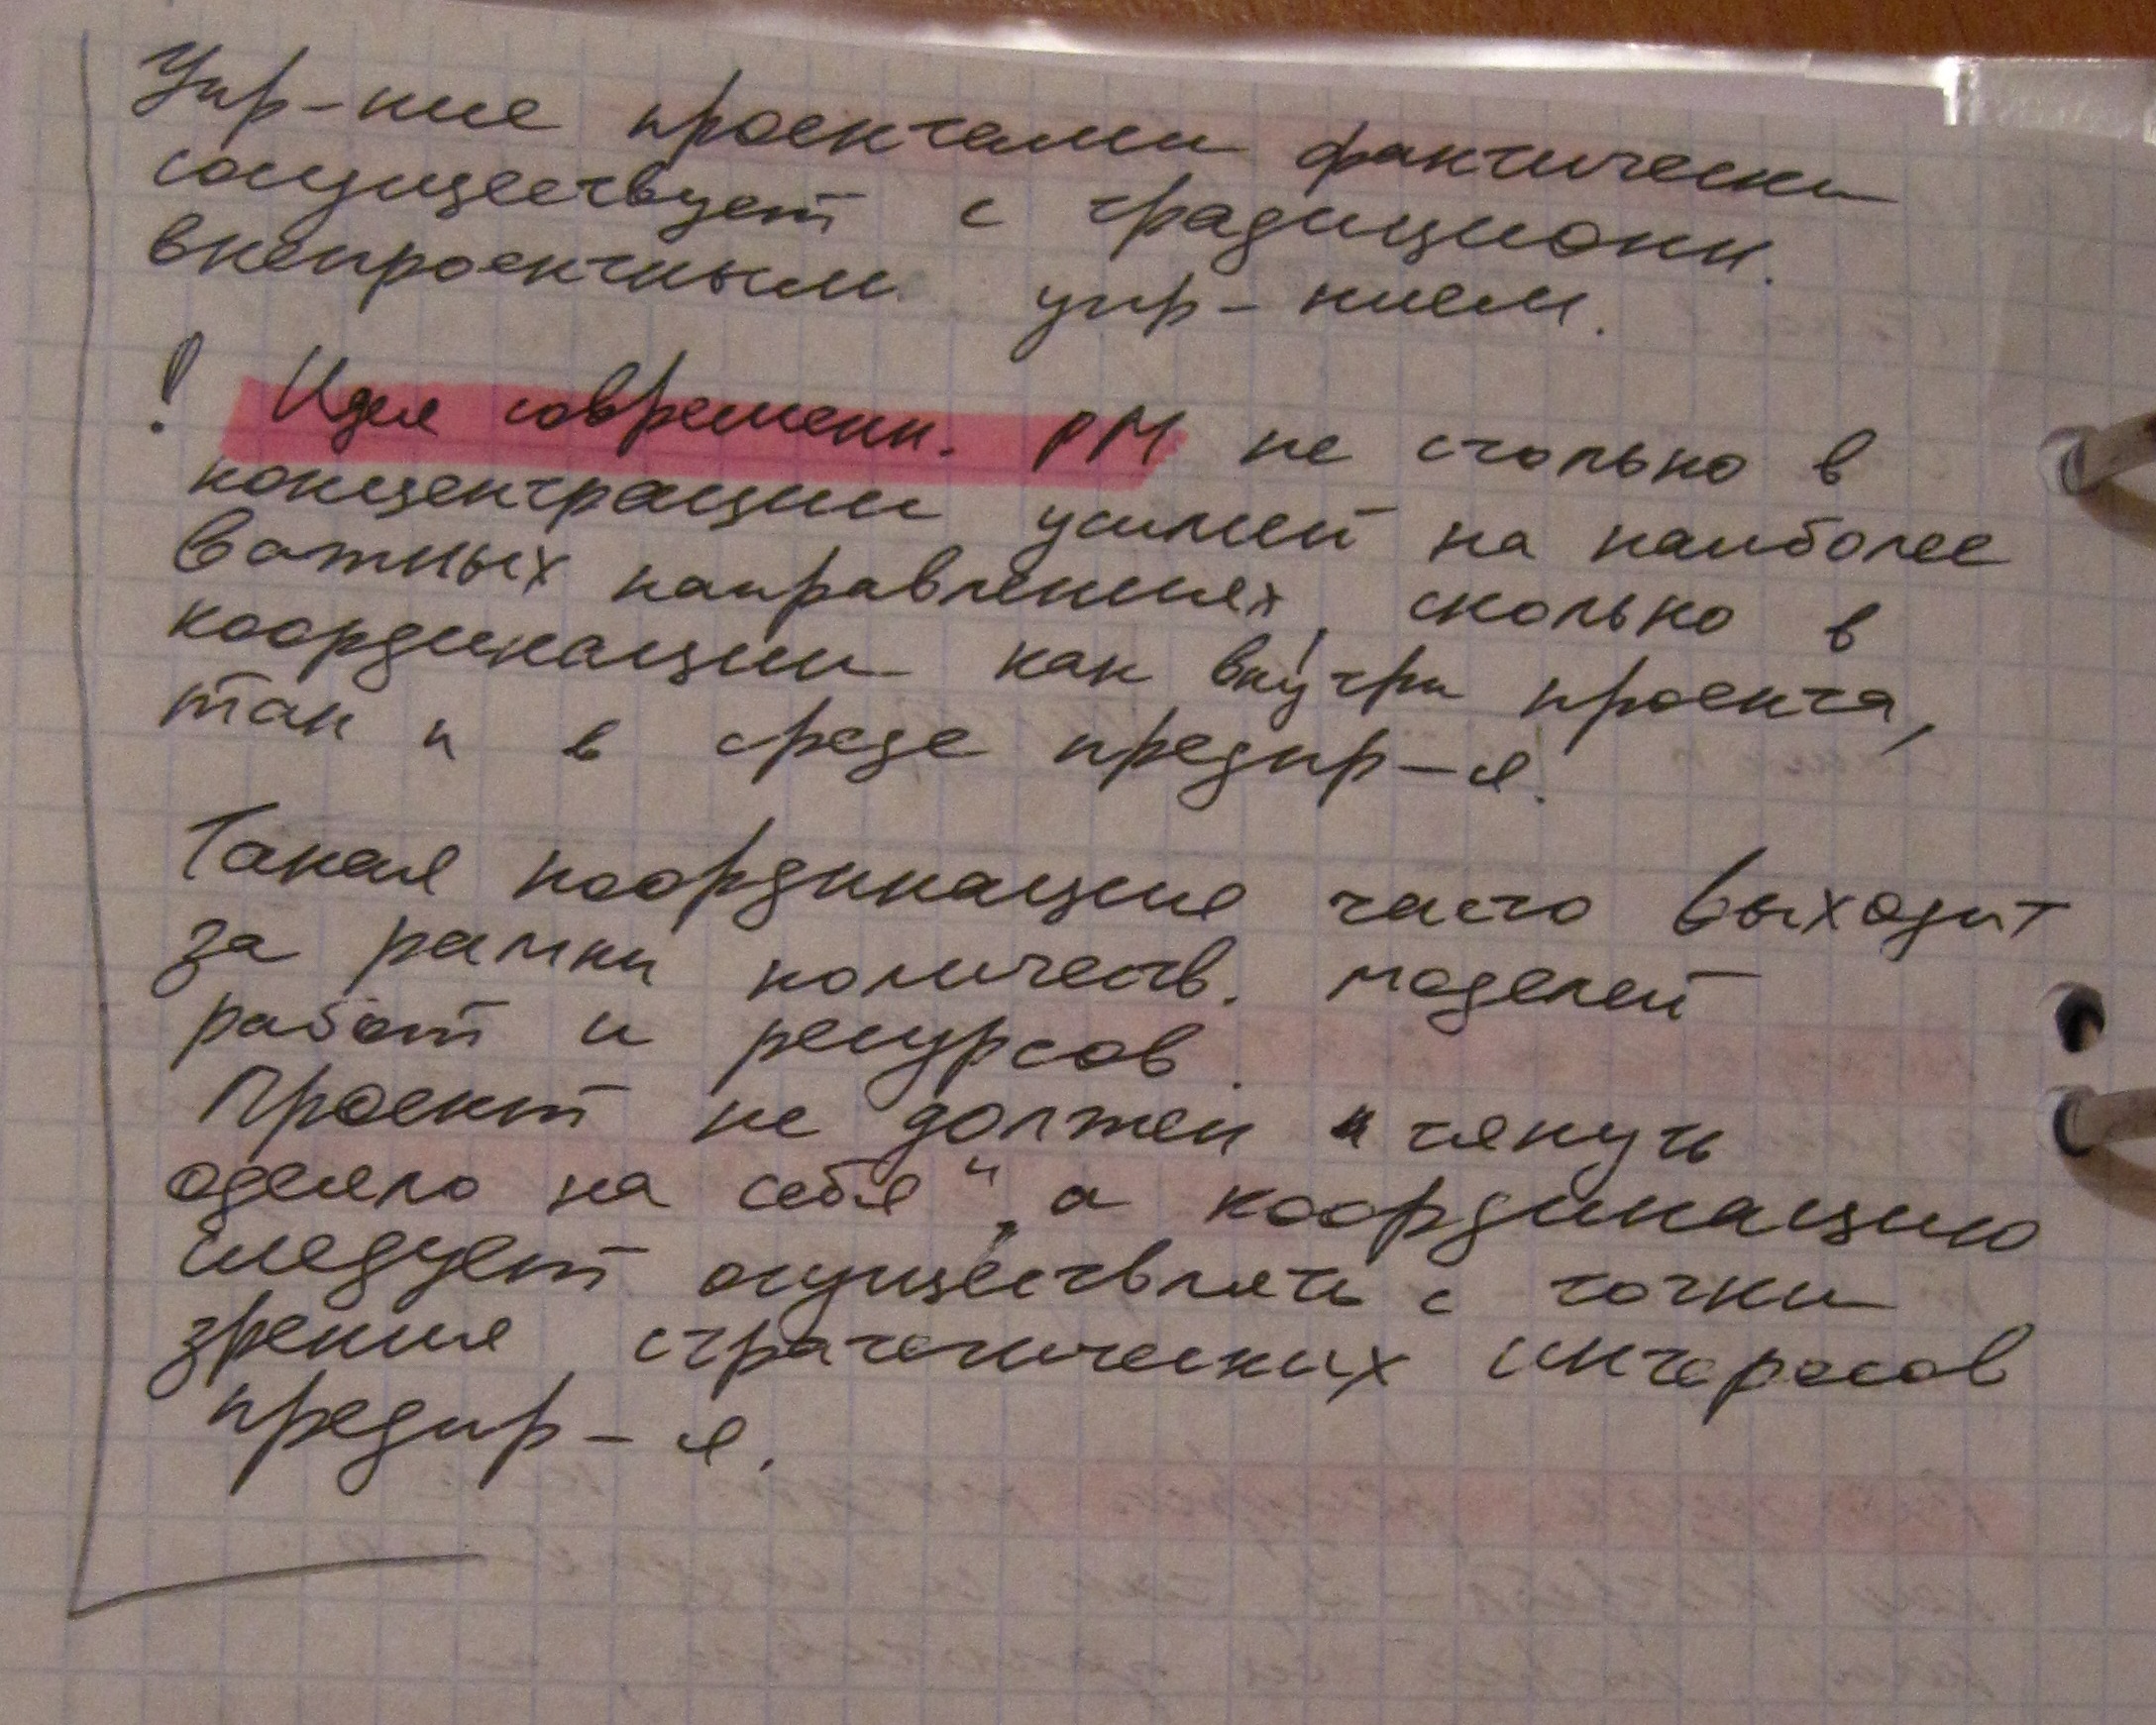 Упр-ние проектами фактически
сосуществует с традиционн.
внепроектным упр-нием.
! Идея современн. PM не столько в
концентрации усилий на наиболее
важных направлениях, сколько в
координации как внутри проекта,
так и в среде предпр-я.
Такая координация часто выходит
за рамки количеств. моделей
работ и ресурсов.
Проект не должен "тянуть
одеяло на себя", а координацию
следует осуществлять с точки
зрения стратегических интересов
предпр-я.